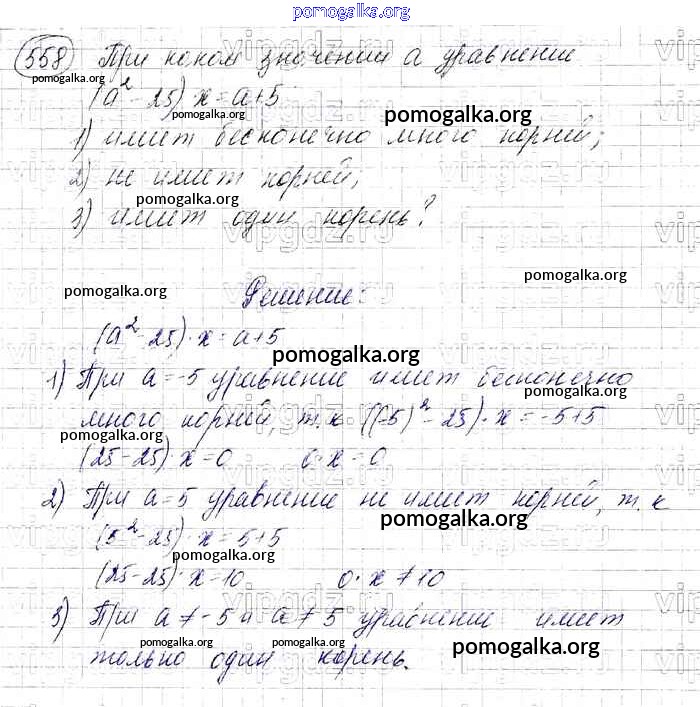 pomogalka.org
558) При каком значении a уравнение
pomogalka.org
(a² - 25) · x = a + 5
pomogalka.org pomogalka.org
1) имеет бесконечно много корней;
2) не имеет корней;
pomogalka.org
3) имеет один корень?
vipgdz.ru
pomogalka.org
pomogalka.org Решение:
(a² - 25) · x = a + 5
pomogalka.org
1) При a = -5 уравнение имеет бесконечно
pomogalka.org
много корней, т.к ((-5)² - 25) · x = -5 + 5
pomogalka.org
(25 - 25) · x = 0 0 · x = 0
2) При a = 5 уравнение не имеет корней, т.к
pomogalka.org
(5² - 25) · x = 5 + 5
pomogalka.org
(25 - 25) · x = 10 0 · x ≠ 10
3) При a ≠ -5 и a ≠ 5 уравнение имеет
pomogalka.org pomogalka.org pomogalka.org
только один корень.